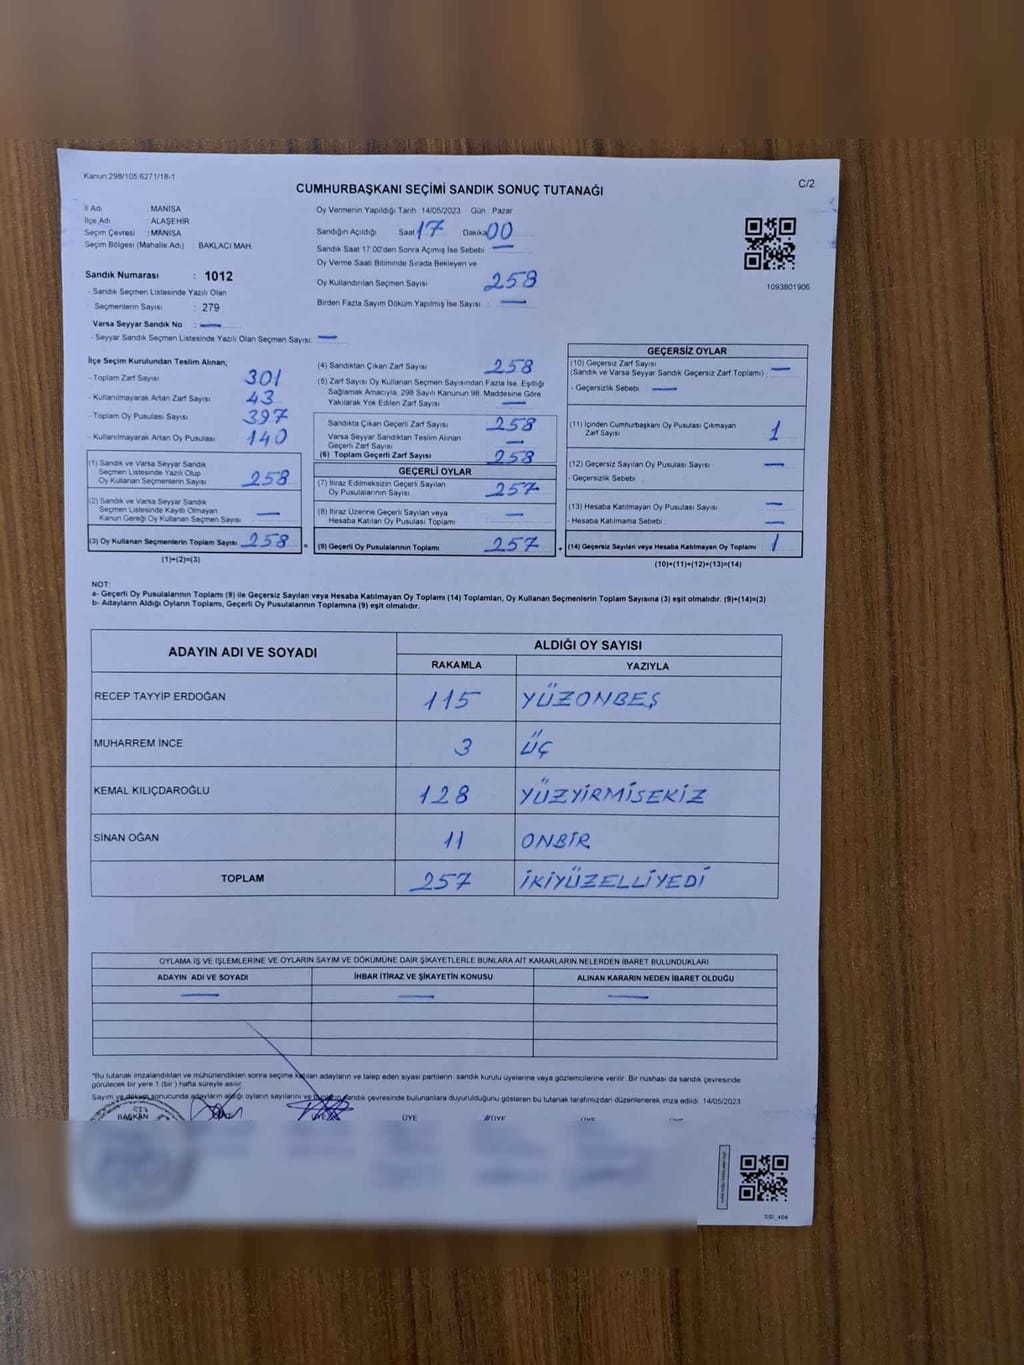 Kanun:298/105;6271/18-1
C/2
CUMHURBAŞKANI SEÇİMİ SANDIK SONUÇ TUTANAĞI
İl Adı : MANİSA
İlçe Adı : ALAŞEHİR
Seçim Çevresi : MANİSA
Seçim Bölgesi (Mahalle Adı) : BAKLACI MAH.
Sandık Numarası : 1012
- Sandık Seçmen Listesinde Yazılı Olan
Seçmenlerin Sayısı : 279
Varsa Seyyar Sandık No : —
- Seyyar Sandık Seçmen Listesinde Yazılı Olan Seçmen Sayısı: —
Oy Vermenin Yapıldığı Tarih :14/05/2023 Gün : Pazar
Sandığın Açıldığı Saat 17 Dakika 00
Sandık Saat 17.00'den Sonra Açılmış İse Sebebi —
Oy Verme Saati Bitiminde Sırada Bekleyen ve
Oy Kullandırılan Seçmen Sayısı 258
Birden Fazla Sayım Döküm Yapılmış İse Sayısı —
1093801906
İlçe Seçim Kurulundan Teslim Alınan;
- Toplam Zarf Sayısı 301
- Kullanılmayarak Artan Zarf Sayısı 43
- Toplam Oy Pusulası Sayısı 397
- Kullanılmayarak Artan Oy Pusulası 140
(1) Sandık ve Varsa Seyyar Sandık
Seçmen Listesinde Yazılı Olup
Oy Kullanan Seçmenlerin Sayısı 258
(2) Sandık ve Varsa Seyyar Sandık
Seçmen Listesinde Kayıtlı Olmayan
Kanun Gereği Oy Kullanan Seçmen Sayısı —
(3) Oy Kullanan Seçmenlerin Toplam Sayısı 258 =
(1)+(2)=(3)
(4) Sandıktan Çıkan Zarf Sayısı 258
(5) Zarf Sayısı Oy Kullanan Seçmen Sayısından Fazla İse, Eşitliği
Sağlamak Amacıyla, 298 Sayılı Kanunun 98. Maddesine Göre
Yakılarak Yok Edilen Zarf Sayısı —
Sandıkta Çıkan Geçerli Zarf Sayısı 258
Varsa Seyyar Sandıktan Teslim Alınan
Geçerli Zarf Sayısı —
(6) Toplam Geçerli Zarf Sayısı 258
GEÇERLİ OYLAR
(7) İtiraz Edilmeksizin Geçerli Sayılan
Oy Pusulalarının Sayısı 257
(8) İtiraz Üzerine Geçerli Sayılan veya
Hesaba Katılan Oy Pusulası Toplamı —
(9) Geçerli Oy Pusulalarının Toplamı 257 +
GEÇERSİZ OYLAR
(10) Geçersiz Zarf Sayısı
(Sandık ve Varsa Seyyar Sandık Geçersiz Zarf Toplamı) : —
- Geçersizlik Sebebi : —
(11) İçinden Cumhurbaşkanı Oy Pusulası Çıkmayan
Zarf Sayısı 1
(12) Geçersiz Sayılan Oy Pusulası Sayısı —
- Geçersizlik Sebebi :
(13) Hesaba Katılmayan Oy Pusulası Sayısı —
- Hesaba Katılmama Sebebi —
(14) Geçersiz Sayılan veya Hesaba Katılmayan Oy Toplamı 1
(10)+(11)+(12)+(13)=(14)
NOT:
a- Geçerli Oy Pusulalarının Toplamı (9) ile Geçersiz Sayılan veya Hesaba Katılmayan Oy Toplamı (14) Toplamları, Oy Kullanan Seçmenlerin Toplam Sayısına (3) eşit olmalıdır. (9)+(14)=(3)
b- Adayların Aldığı Oyların Toplamı, Geçerli Oy Pusulalarının Toplamına (9) eşit olmalıdır.
ADAYIN ADI VE SOYADI
ALDIĞI OY SAYISI
RAKAMLA YAZIYLA
RECEP TAYYİP ERDOĞAN 115 YÜZONBEŞ
MUHARREM İNCE 3 ÜÇ
KEMAL KILIÇDAROĞLU 128 YÜZYİRMİSEKİZ
SİNAN OĞAN 11 ONBİR
TOPLAM 257 İKİYÜZELLİYEDİ
OYLAMA İŞ VE İŞLEMLERİNE VE OYLARIN SAYIM VE DÖKÜMÜNE DAİR ŞİKAYETLERLE BUNLARA AİT KARARLARIN NELERDEN İBARET BULUNDUKLARI
ADAYIN ADI VE SOYADI İHBAR İTİRAZ VE ŞİKAYETİN KONUSU ALINAN KARARIN NEDEN İBARET OLDUĞU
— — —
*Bu tutanak imzalandıktan ve mühürlendikten sonra seçime katılan adayların ve talep eden siyasi partilerin sandık kurulu üyelerine veya gözlemcilerine verilir .Bir nüshası da sandık çevresinde
görülecek bir yere 1 (bir ) hafta süreyle asılır.
Sayım ve döküm sonucunda adayların aldığı oyların sayılarını ve sandık çevresinde bulunanlara duyurulduğunu gösteren bu tutanak tarafımızdan düzenlenerek imza edildi. 14/05/2023
BAŞKAN ÜYE ÜYE ÜYE ÜYE ÜYE